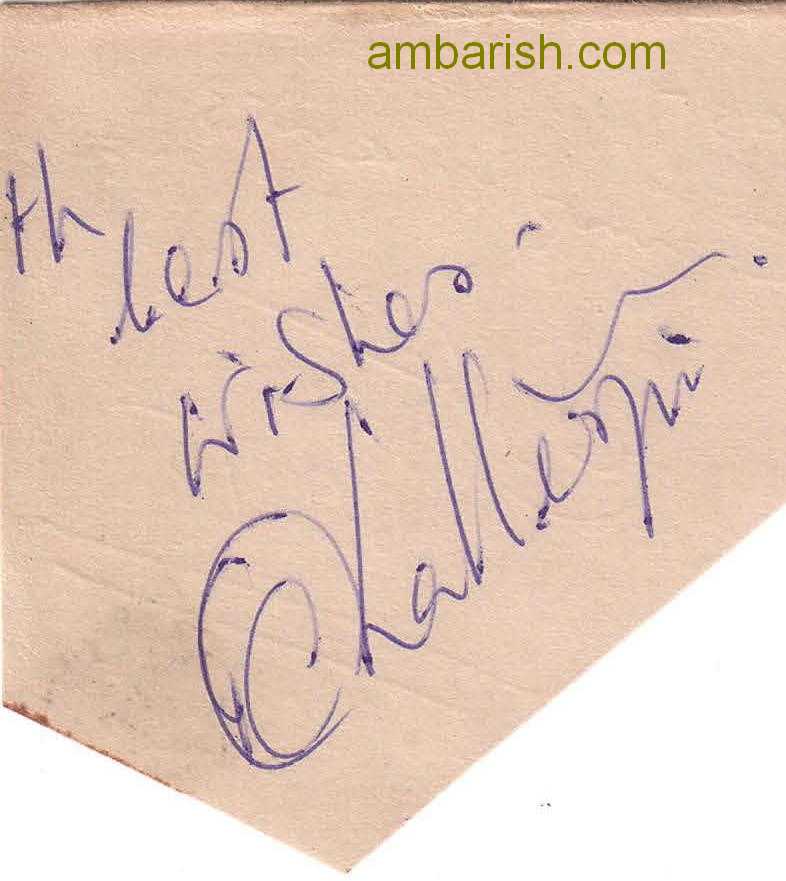 ambarish.com
th best
wishes.